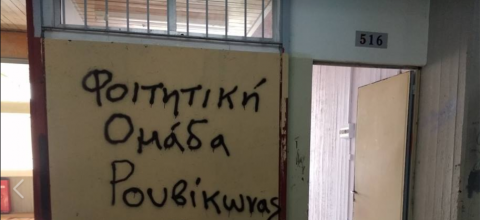 516
Φοιτητική
Ομάδα
Ρουβίκωνας